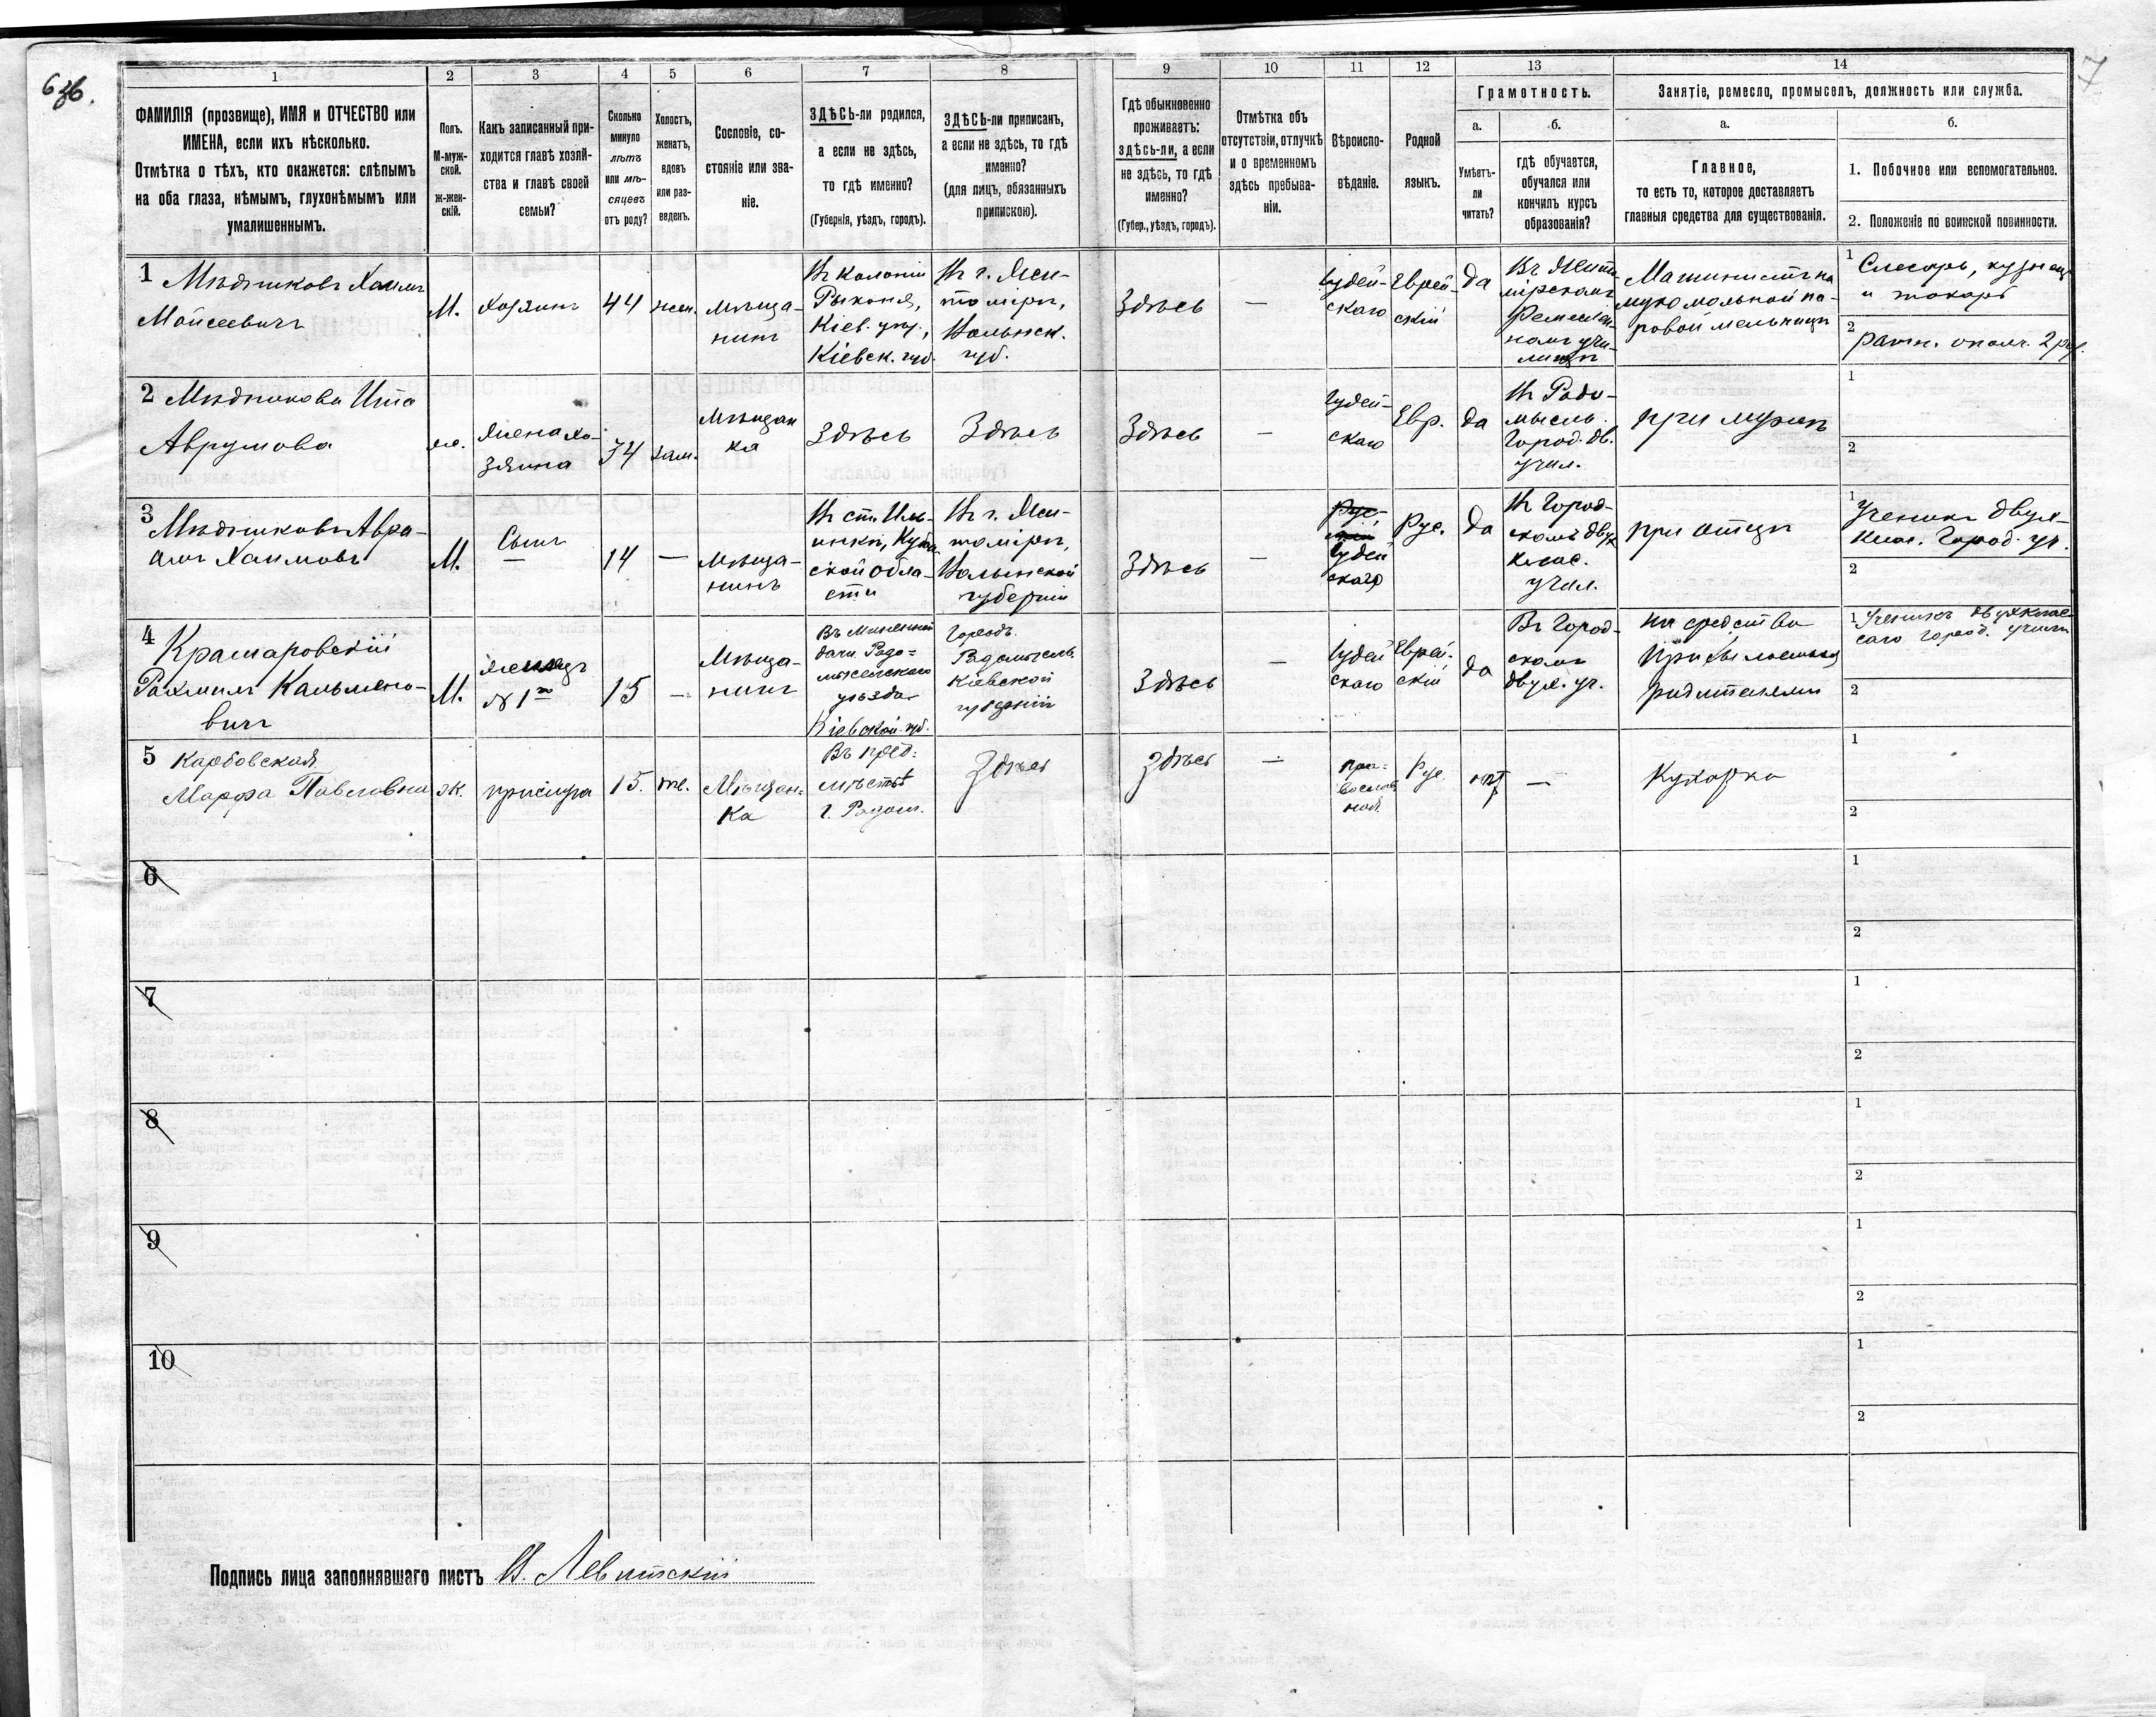 636.
7
1 2 3 4 5 6 7 8 9 10 11 12 13 14
ФАМИЛІЯ (прозвище), ИМЯ и ОТЧЕСТВО или
ИМЕНА, если ихъ нѣсколько.
Отмѣтка о тѣхъ, кто окажется: слѣпымъ
на оба глаза, нѣмымъ, глухонѣмымъ или
умалишеннымъ.
Полъ.
М-муж-
ской.
ж-жен-
скій.
Какъ записанный при-
ходится главѣ хозяй-
ства и главѣ своей
семьи?
Сколько
минуло
лѣтъ
или мѣ-
сяцевъ
отъ роду?
Холостъ,
женатъ,
вдовъ
или раз-
веденъ.
Сословіе, со-
стояніе или зва-
ніе.
ЗДѢСЬ-ли родился,
а если не здѣсь,
то гдѣ именно?
(Губернія, уѣздъ, городъ).
ЗДѢСЬ-ли приписанъ,
а если не здѣсь, то гдѣ
именно?
(для лицъ, обязанныхъ
припискою).
Гдѣ обыкновенно
проживаетъ:
здѣсь-ли, а если
не здѣсь, то гдѣ
именно?
(Губер., уѣздъ, городъ).
Отмѣтка объ
отсутствіи, отлучкѣ
и о временномъ
здѣсь пребыва-
ніи.
Вѣроиспо-
вѣданіе.
Родной
языкъ.
Грамотность.
а.
Умѣетъ-
ли
читать?
б.
гдѣ обучается,
обучался или
кончилъ курсъ
образованія?
Занятіе, ремесло, промыселъ, должность или служба.
а.
Главное,
то есть то, которое доставляетъ
главныя средства для существованія.
б.
1. Побочное или вспомогательное.
2. Положеніе по воинской повинности.
1 Мѣдниковъ Хаимъ
Мойсеевичъ
М.
Хозяинъ
44
жен.
мѣща-
нинъ
Въ колоніи
Рыконя,
Кіев. уѣз.,
Кіевск. губ.
Въ г. Жи-
томірѣ,
Волынск.
губ.
Здѣсь
—
Іудей-
скаго
Еврей-
скій
да
Въ Жито-
мірскомъ
Ремеслен-
номъ учи-
лищѣ
Машинистъ на
мукомольной па-
ровой мельницѣ
1 Слесарь, кузнец
и токарь
2 ратн. ополч. 2 раз.
2 Мѣдникова Ита
Аврумова
ж.
Жена хо-
зяина
34
зам.
Мѣщан
ка
Здѣсь
Здѣсь
Здѣсь
—
Іудей-
скаго
Евр.
да
Въ Радо-
мысль.
Город. дв.
учил.
при мужѣ
1
2
3 Мѣдниковъ Авра-
амъ Хаимовъ
М.
Сынъ
—
14
—
Мѣща-
нинъ
Въ ст. Иль-
инкѣ, Кубан
ской обла-
сти
Въ г. Жи-
томірѣ,
Волынской
губерніи
Здѣсь
—
Рус-
скій
Іудей
скаго
Рус.
да
Въ Город-
скомъ двух
клас.
учил.
при отцѣ
1 Ученикъ двух-
клас. Город. уч.
2
4 Крашаровскій
Рахмилъ Кальмено-
вичъ
М.
жилецъ
№ 1й
15
—
Мѣща-
нинъ
Въ
дачи Радо=
мысельскаго
уѣзда
Кіевской губ.
Городъ
Радомысль
Кіевской
губерніи
Здѣсь
—
Іудей
скаго
Еврей-
скій
да
Въ Город-
скомъ
двух. уч.
на средства
присылаемыя
родителями
1 Ученикъ двухклас-
саго город. учили
2
5 Карбовская
Марфа Павловна
Ж.
прислуга
15.
Мѣщан-
ка
Въ пред-
мѣстьѣ
г. Радом.
Здѣсь
Здѣсь
—
пра-
вослав
ной.
Рус.
нѣтъ
—
Кухарка
1
2
6
1
2
7
1
2
8
1
2
9
1
2
10
1
2
Подпись лица заполнявшаго листъ И. Левитскій